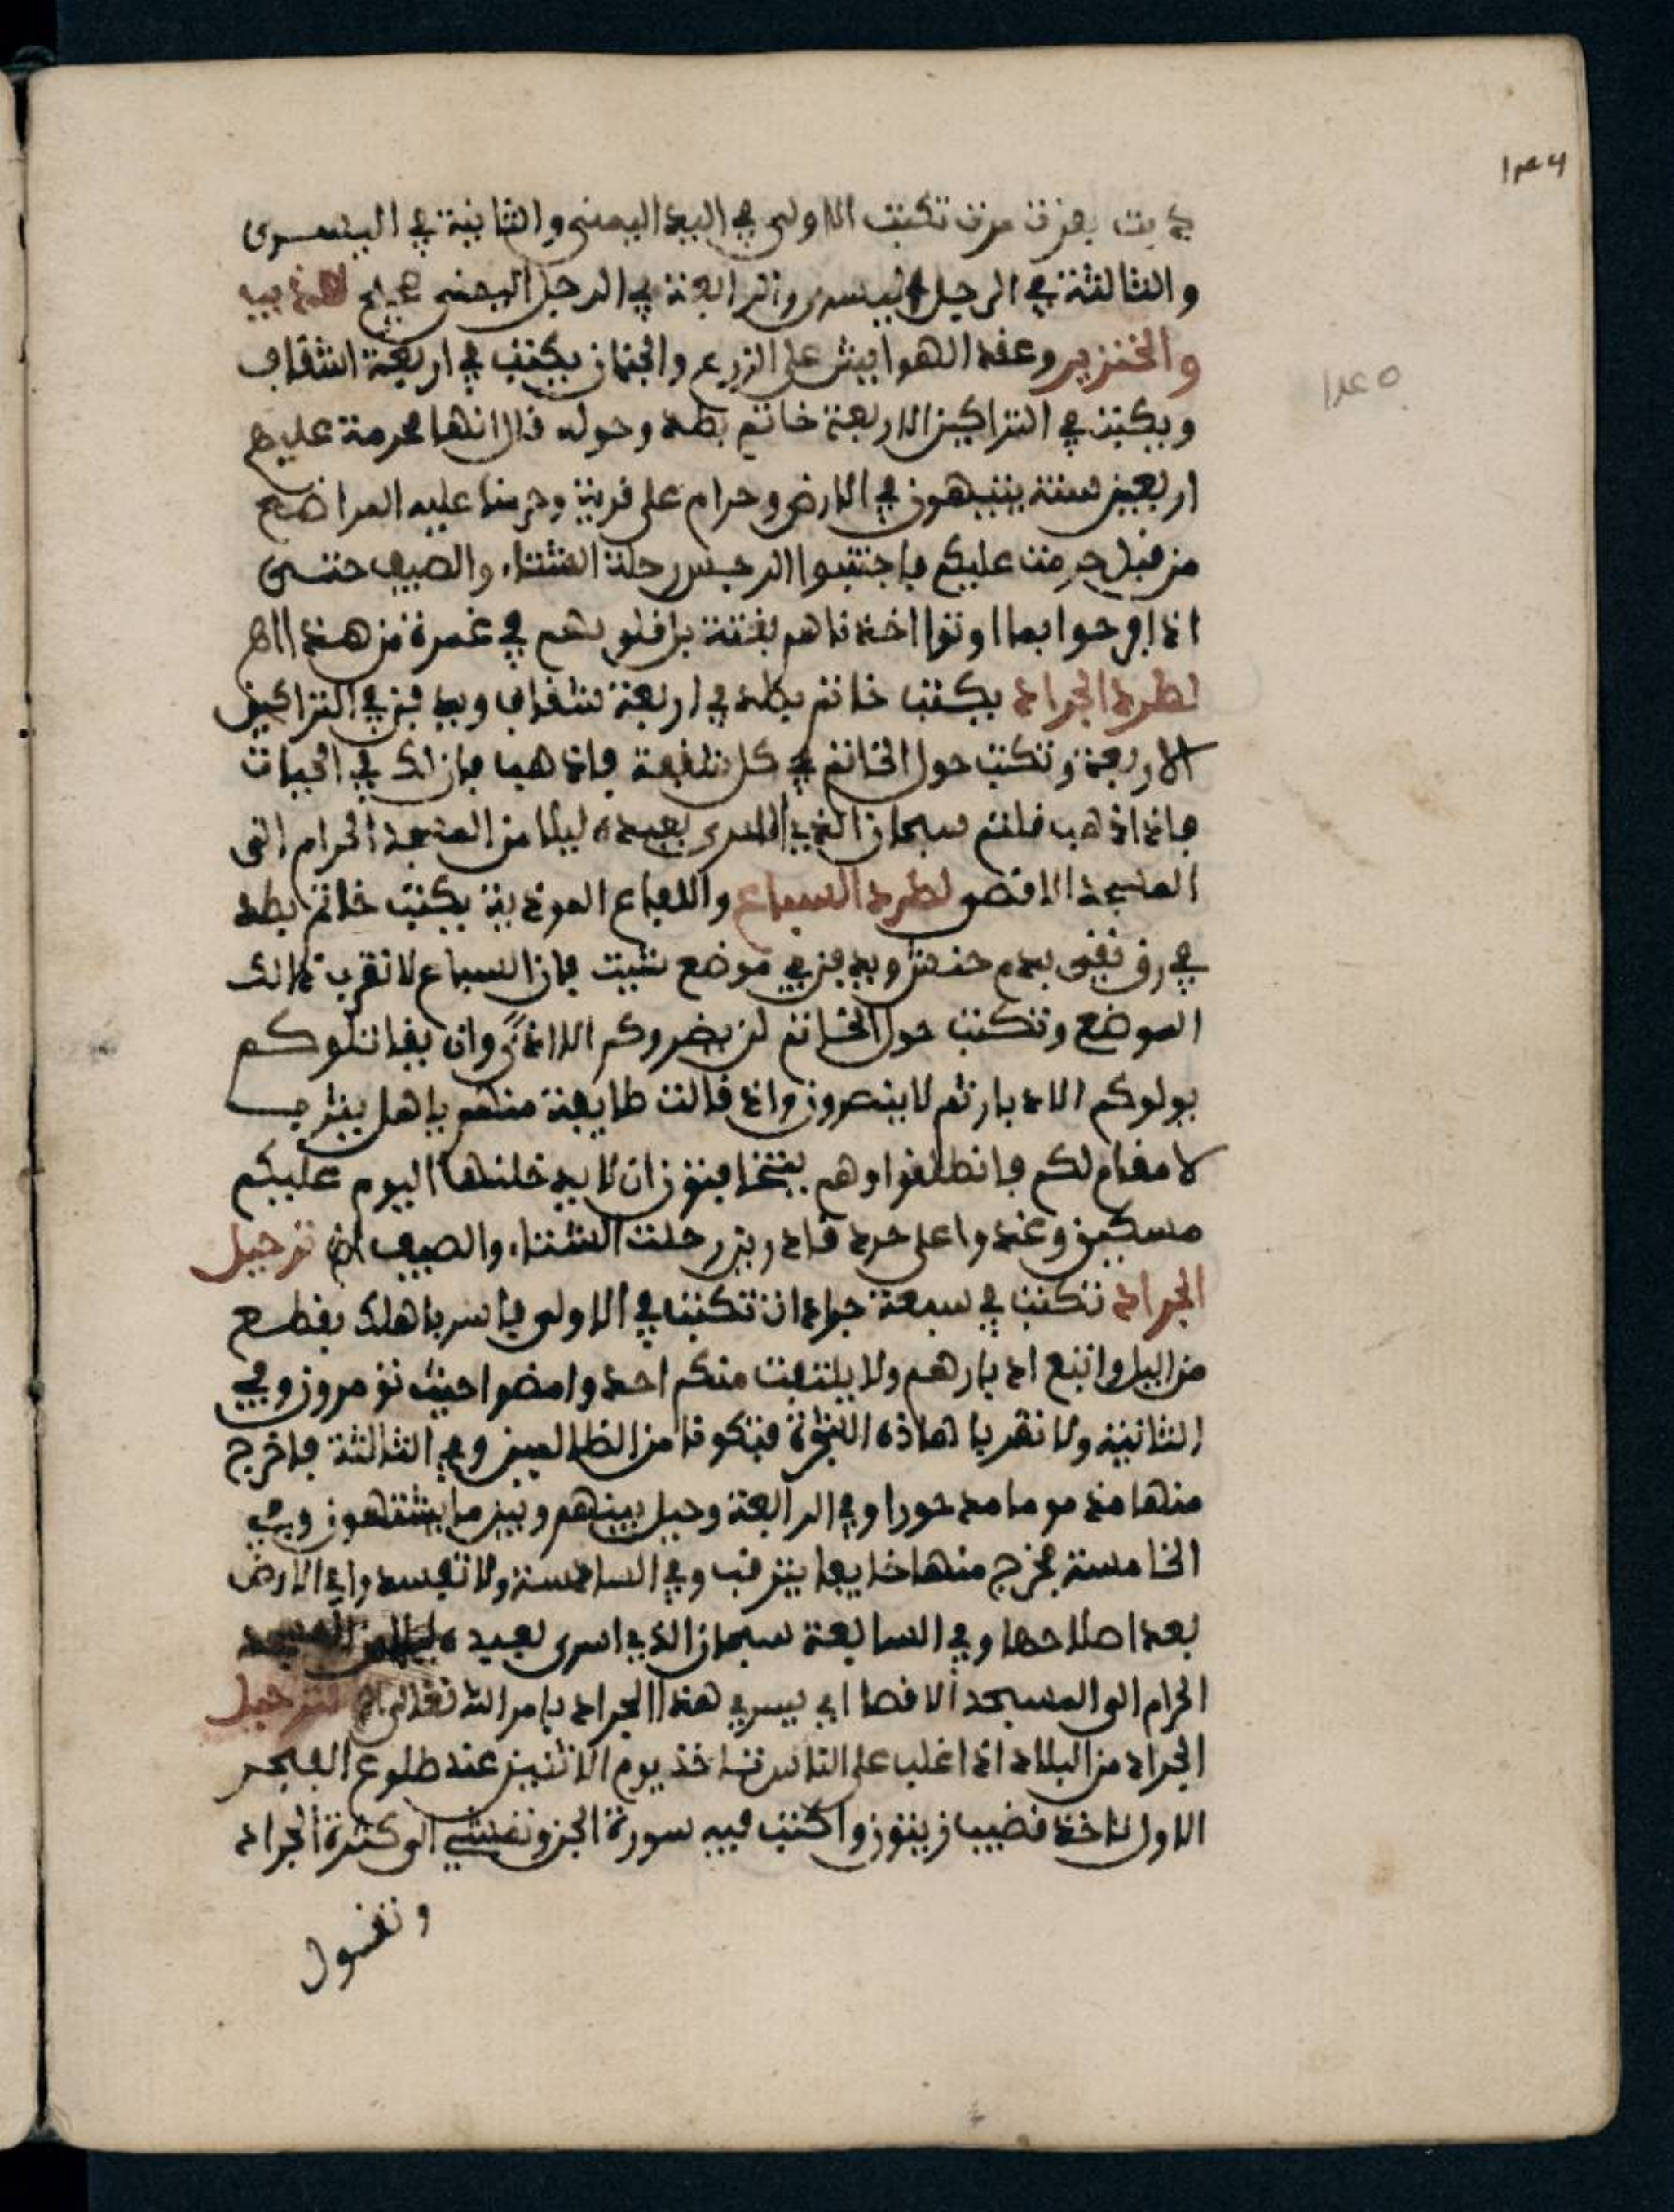 ١٣٤٦
١٨٤٥
تكتب الاولى في اليد اليمنى والثانية في اليسرى
والثالثة في الرجل اليسرى والرابعة في الرجل اليمنى صحيح للذيب
والخنزير وعقد الهوايش على الزرع والجنان يكتب في اربعة اشقاف
ويكتب في التراكين الاربعة خاتم بطد وحوله قال انها محرمة عليهم
اربعين سنة يتيهون في الارض وحرام على قرية وحرمنا عليه المراضع
من قبل حرمت عليكم فاجتنبوا الرجس رحلة الشتاء والصيف حتى
اذا فرحوا بما اوتوا اخذناهم بغتة بل قلوبهم في غمرة من هذا اه
لطرد الجراد يكتب خاتم بطد في اربعة شقاف ويدفن في التراكين
الاربعة وتكتب حول الخاتم في كل شقفة فاذهب فان لك في الحياة
فاذا ذهب قلتم سبحان الذي اسرى بعبده ليلا من المسجد الحرام الى
المسجد الاقصى لطرد السباع والافاع الموذية يكتب خاتم بطد
في رق نقي بدم ويدفن في موضع شيت فان السباع لا تقرب ذالك
الموضع وتكتب حول الخاتم لن يضروكم الا اذى وان يقاتلوكم
يولوكم الادبار ثم لا ينصرون واذ قالت طايفة منهم ياهل يثرب
لا مقام لكم فانطلقوا وهم يتخافتون ان لا يدخلنها اليوم عليكم
مسكين وغدوا على حرد قادرين رحلت الشتاء والصيف اه ترحيل
الجراد تكتب في سبعة جرادات تكتب في الاولى فاسر باهلك بقطع
من اليل واتبع ادبارهم ولا يلتفت منكم احد وامضوا حيث تومرون وفي
الثانية ولا تقربا هاذه الشجرة فتكونا من الظالمين وفي الثالثة فاخرج
منها مذموما مدحورا وفي الرابعة وحيل بينهم وبين ما يشتهون وفي
الخامسة فخرج منها خايفا يترقب وفي السادسة ولا تفسدوا في الارض
بعد اصلاحها وفي السابعة سبحان الذي اسرى بعبده ليلا من المسجد
الحرام الى المسجد الاقصا اي يسري هذا الجراد بامر الله تعالى اه لترحيل
الجراد من البلاد اذا غلب على الناس تاخذ يوم الاثنين عند طلوع الفجر
الاول تاخذ قضيب زيتون واكتب فيه سورة الجن وتمشي الى كثرة الجراد
وتقول